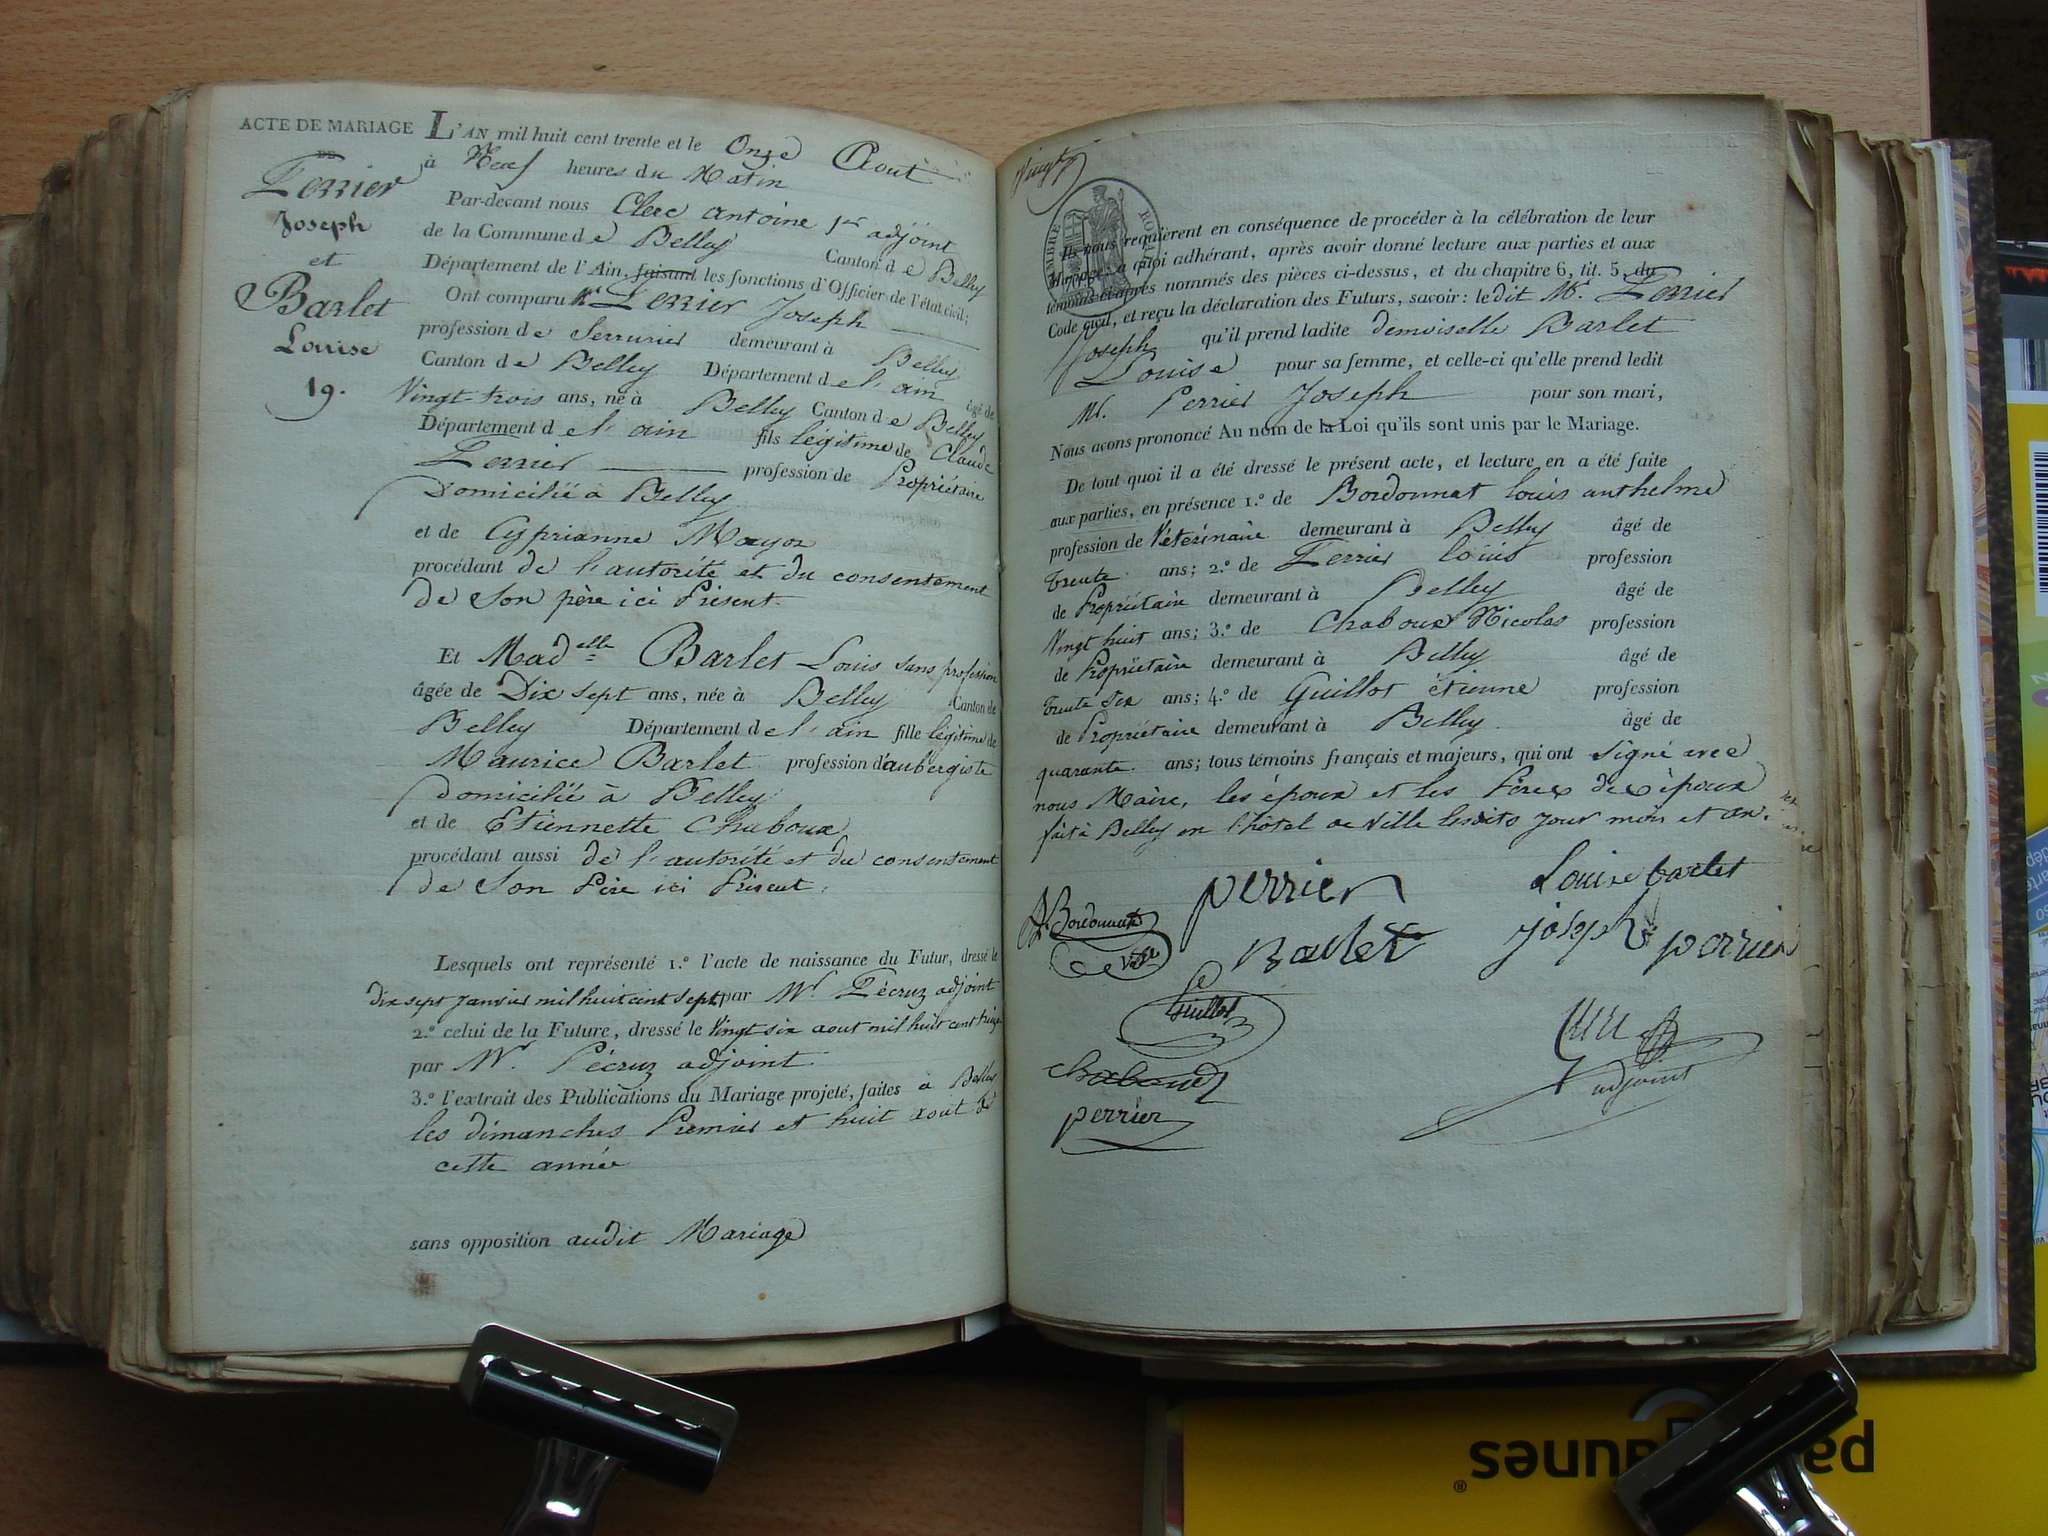 ACTE DE MARIAGE
DE
Perrier
Joseph
et
Barlet
Louise
19.
L'AN mil huit cent trente et le Onze Aout
à Neuf heures du Matin
Par-devant nous Clerc antoine 1er adjoint
de la Commune de Belley Canton de Belley
Département de l'Ain, faisant les fonctions d'Officier de l'état civil;
Ont comparu Mr Perrier Joseph
profession de Serrurier demeurant à Belley
Canton de Belley Département de l'ain âgé de
Vingt trois ans, né à Belley Canton de Belley
Département de l'ain fils légitime de Claude
Perrier profession de Propriétaire
Domicilié à Belley
et de Cyprianne Mayor
procédant de l'autorité et du consentement
de Son père ici Présent.
Et Madelle Barlet Louis sans profession
âgée de Dix sept ans, née à Belley Canton de
Belley Département de l'ain fille légitime de
Maurice Barlet profession d'aubergiste
Domicilié à Belley
et de Etiennette Chaboux
procédant aussi de l'autorité et du consentement
de Son Père ici Présent.
Lesquels ont représenté 1.º l'acte de naissance du Futur, dressé le
dix sept Janvier mil huit cent sept par Mr Pécruz adjoint
2.º celui de la Future, dressé le Vingt six aout mil huit cent treize
par Mr. Pécruz adjoint
3.º l'extrait des Publications du Mariage projeté, faites à Belley
les dimanches Premier et huit aout de
cette année
sans opposition audit Mariage
Vingt
TIMBRE ROYAL
Ils nous requièrent en conséquence de procéder à la célébration de leur
Mariage; à quoi adhérant, après avoir donné lecture aux parties et aux
témoins ci-après nommés des pièces ci-dessus, et du chapitre 6, tit. 5, du
Code civil, et reçu la déclaration des Futurs, savoir: ledit Mr. Perrier
Joseph qu'il prend ladite demoiselle Barlet
Louise pour sa femme, et celle-ci qu'elle prend ledit
Mr. Perrier Joseph pour son mari,
Nous avons prononcé Au nom de la Loi qu'ils sont unis par le Mariage.
De tout quoi il a été dressé le présent acte, et lecture en a été faite
aux parties, en présence 1.º de Bordonnat louis anthelme
profession de Vétérinaire demeurant à Belley âgé de
trente ans; 2.º de Perrier louis profession
de Propriétaire demeurant à Belley âgé de
Vingt huit ans; 3.º de Chaboux Nicolas profession
de Propriétaire demeurant à Belley âgé de
trente six ans; 4.º de Guillot étienne profession
de Propriétaire demeurant à Belley âgé de
quarante ans; tous témoins français et majeurs, qui ont signé avec
nous Maire, les époux et les Pères des époux
fait à Belley en l'hôtel de Ville lesdits jour mois et an.
perrier Louise barlet
Bordonnat
Barlet Joseph perrier
Guillot
Clerc
adjoint
chaboud
perrier
pa aunes®